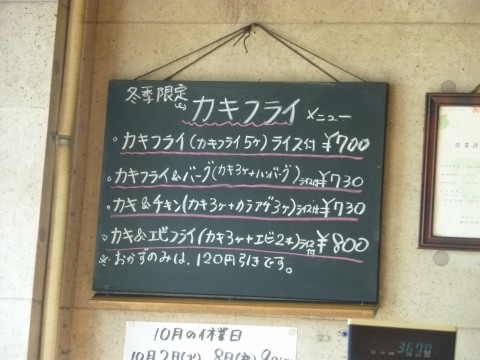 冬季限定 カキフライ メニュー
。カキフライ(カキフライ5ケ)ライス付 ¥700
。カキフライ&バーグ(カキ3ケ+ハンバーグ)ライス付¥730
。カキ&チキン(カキ3ケ+カラアゲ3ケ)ライス付¥730
。カキ&エビフライ(カキ3ケ+エビ2本)ライス付¥800
※おかずのみは、120円引きです。
10月の休業日
10月2日(火) 8日(月)